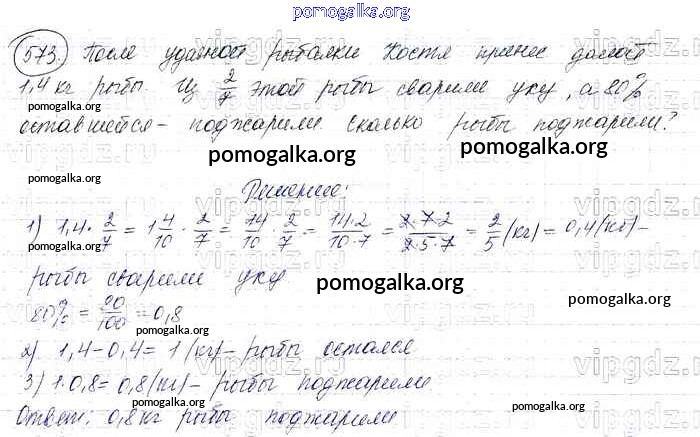 pomogalka.org
573. После удачной рыбалки Костя принес домой
1,4 кг рыбы. Из 2/7 этой рыбы сварили уху, а 80%
pomogalka.org
оставшейся - поджарили. Сколько рыбы поджарили?
pomogalka.org pomogalka.org
pomogalka.org Решение: vipgdz.ru
1) 1,4 · 2/7 = 1 4/10 · 2/7 = 14/10 · 2/7 = 14·2/10·7 = 2·7·2/2·5·7 = 2/5 (кг) = 0,4 (кг) -
pomogalka.org pomogalka.org
рыбы сварили уху pomogalka.org
80% = 80/100 = 0,8
pomogalka.org pomogalka.org
2) 1,4 - 0,4 = 1 (кг) - рыбы остался
3) 1·0,8 = 0,8 (кг) - рыбы поджарили
pomogalka.org pomogalka.org
Ответ: 0,8 кг рыбы поджарили